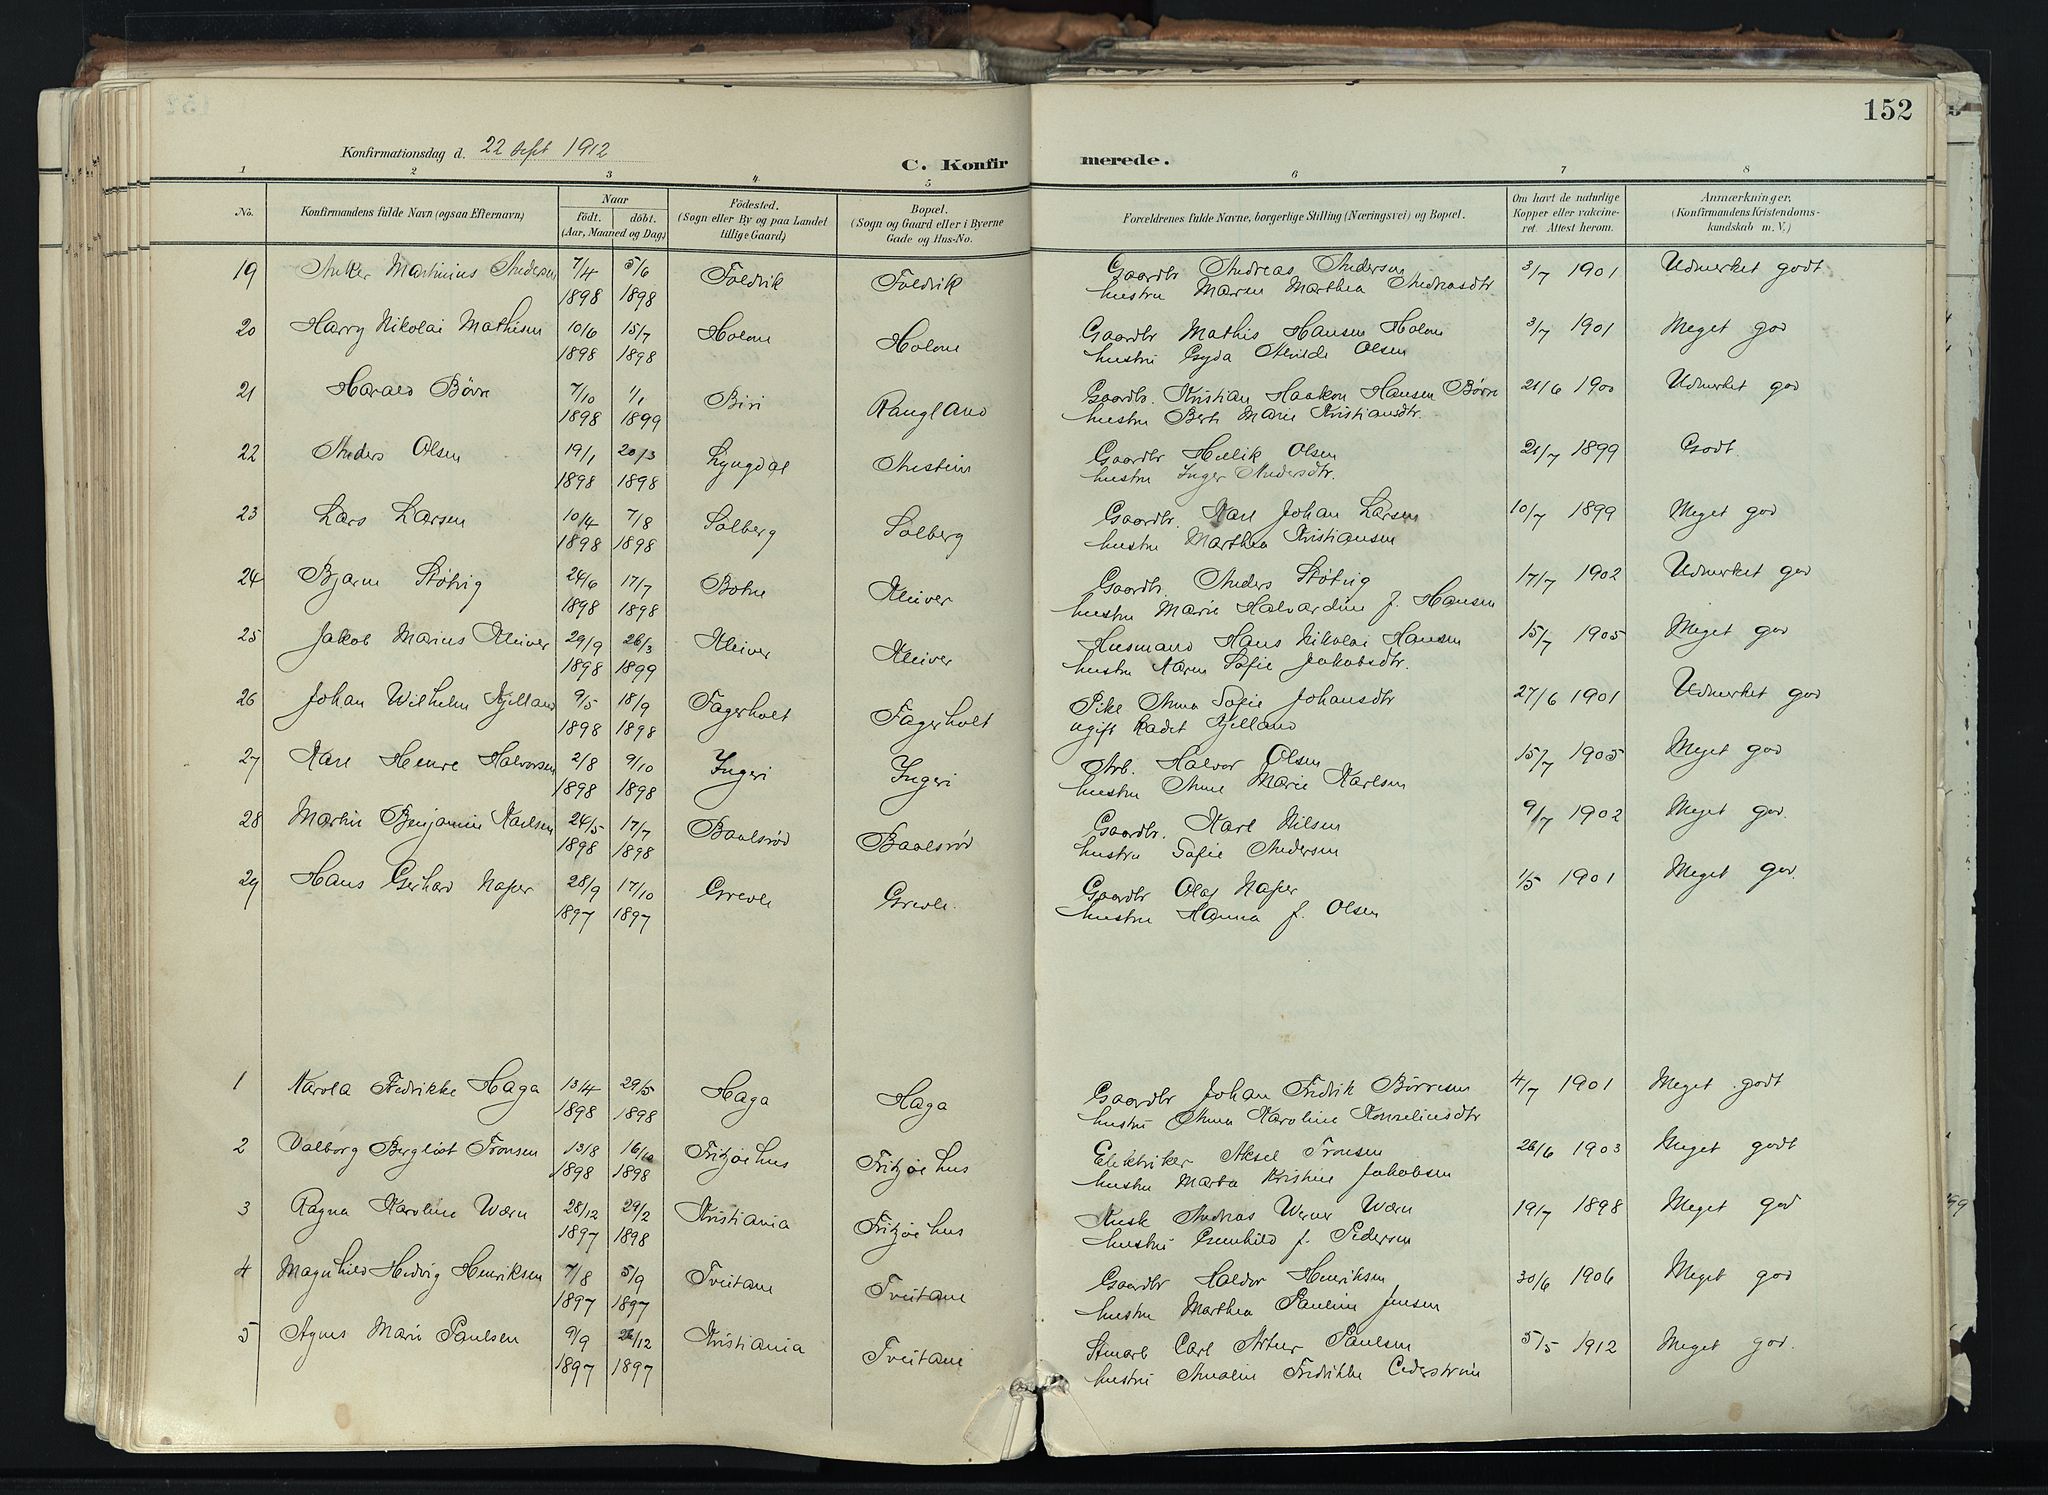 152
Konfirmationsdag d. 22 Sept 1912
C. Konfir merede.
1 2 3 4 5 6 7 8
No. Konfirmandens fulde Navn (ogsaa Efternavn) Naar født. døbt. (Aar, Maaned og Dag) Fødested. (Sogn eller By og paa Landet tillige Gaard) Bopæl. (Sogn og Gaard eller i Byerne Gade og Hus-No. Forældrenes fulde Navne, borgerlige Stilling (Næringsvei) og Bopæl. Om havt de naturlige Kopper eller vakcineret. Attest herom. Anmærkninger, (Konfirmandens Kristendomskundskab m. V.)
19 Anker Martinius Andersen 7/4 5/6 Foldvik Foldvik Gaardbr Andreas Andersen 3/7 1901 Udmerket godt
1898 1898 hustru Maren Marthea Andreasdtr
20 Harry Nikolai Mathisen 10/6 15/7 Holone Holone Gaardbr Mathis Hansen Holone 3/7 1901 Meget god
1898 1898 hustru Gyda Olsen
21 Harald Børre 7/10 1/1 Biri Rangland Gaardb. Kristian Haakon Hansen Børre 21/6 1900 Udmerket god
1898 1899 hustru Berte Marie Kristiansdtr.
22 Anders Olsen 19/1 20/3 Lyngdal Gaardbr Hellik Olsen 21/7 1899 Godt.
1898 1898 hustru Inger Andersdtr.
23 Lars Larsen 10/4 7/8 Solberg Solberg Gaardbr. Karl Johan Larsen 10/7 1899 Meget god
1898 1898 hustru Marthea Kristiansen
24 Bjarne Støtvig 24/6 17/7 Botne Kleiver Gaardbr. Anders Støtvig 17/7 1902 Udmerket god
1898 1898 hustru Marie Halvardine f. Hansen
25 Jakob Marius Kleiver 29/9 26/3 Kleiver Kleiver Husmand Hans Nikolai Hansen 15/7 1905 Meget god
1898 1899 hustru Karen Sofie Jakobsdtr.
26 Johan Wilhelm Kjelland 9/5 18/9 Fagerholt Fagerholt Pike Anna Sofie Johansdtr 27/6 1901 Udmerket god
1898 1898 ugift Kadet Kjelland
27 Karl Henre Halvorsen 2/8 9/10 Yngeri Yngeri Arb. Halvor Olsen 15/7 1905 Meget god
1898 1898 hustru Anne Marie Karlsen
28 Martin Benjamin Karlsen 24/5 17/7 Baalsrød Baalsrød Gaardbr. Karl Nilsen 9/7 1902 Meget god.
1898 1898 hustru Sofie Andersen
29 Hans Gerhard Naper 28/9 17/10 Grevle Grevle. Gaardbr Olaf Naper 1/5 1901 Meget god.
1897 1897 hustru Hanna f. Olsen
1 Karola Fredrikke Haga 13/4 29/5 Haga Haga Gaardbr Johan Fredrik Børresen 4/7 1901 Meget godt
1898 1898 hustru Anna Karoline Kornelinusdtr
2 Valborg Bergliot Tronsen 13/8 16/10 Fritzøehus Fritzøehus Elektriker Aksel Tronsen 26/6 1903 Meget godt
1898 1898 hustru Marta Kristine Jakobsen
3 Ragna Karoline Wærn 28/12 29/2 Kristiania Fritzøehus Kusk Andreas Werner Wærn 19/7 1898 Meget god
1897 1898 hustru Gunhild f. Pedersen
4 Magnhild Hedvig Henriksen 7/8 5/9 Tveitane Tveitane Gaardbr Haldor Henriksen 30/6 1906 Meget god
1897 1897 hustru Marthea Pauline Jensen
5 Agnes Marie Paulsen 9/9 26/12 Kristiania Tveitane Stuart Carl Artur Paulsen 5/5 1912 Meget god.
1897 1897 hustru Amalie Fredrikke Cederstrøm